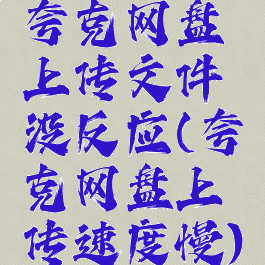 夸克网盘
上传文件
没反应(夸
克网盘上
传速度慢)